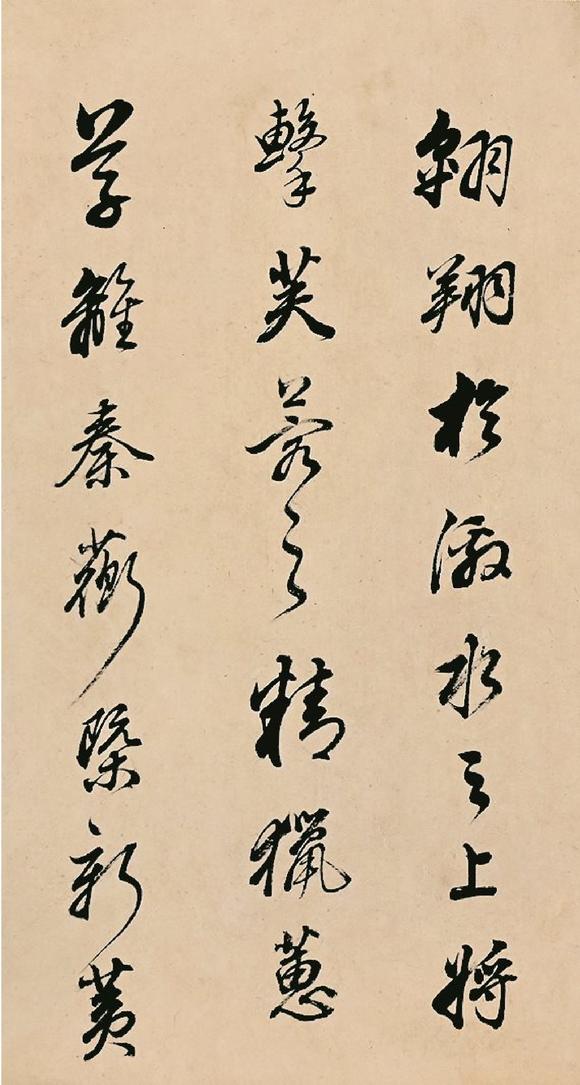 翱翔於激水之上將
擊芙蓉之精獵蕙
草離秦蘅槩新荑